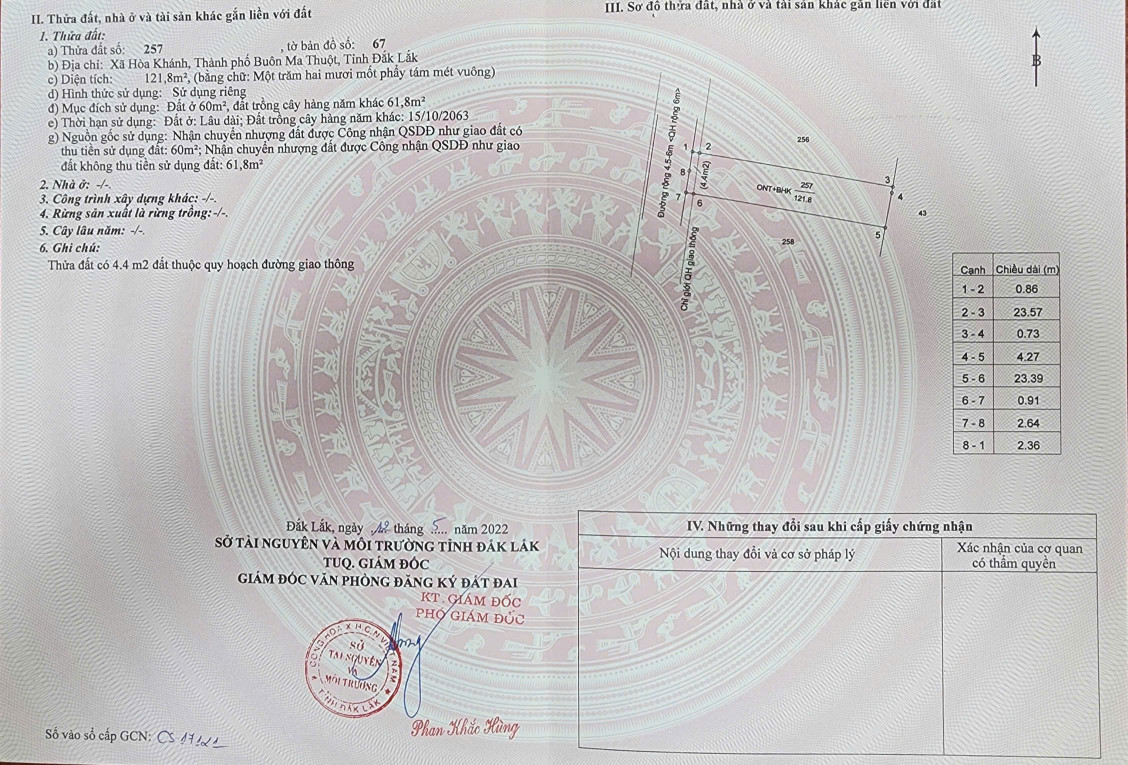 II. Thửa đất, nhà ở và tài sản khác gắn liền với đất
1. Thửa đất:
a) Thửa đất số: 257 , tờ bản đồ số: 67
b) Địa chỉ: Xã Hòa Khánh, Thành phố Buôn Ma Thuột, Tỉnh Đắk Lắk
c) Diện tích: 121,8m², (bằng chữ: Một trăm hai mươi mốt phẩy tám mét vuông)
d) Hình thức sử dụng: Sử dụng riêng
đ) Mục đích sử dụng: Đất ở 60m², đất trồng cây hàng năm khác 61,8m²
e) Thời hạn sử dụng: Đất ở: Lâu dài; Đất trồng cây hàng năm khác: 15/10/2063
g) Nguồn gốc sử dụng: Nhận chuyển nhượng đất được Công nhận QSDĐ như giao đất có
thu tiền sử dụng đất: 60m²; Nhận chuyển nhượng đất được Công nhận QSDĐ như giao
đất không thu tiền sử dụng đất: 61,8m²
2. Nhà ở: -/-.
3. Công trình xây dựng khác: -/-.
4. Rừng sản xuất là rừng trồng: -/-.
5. Cây lâu năm: -/-.
6. Ghi chú:
Thửa đất có 4.4 m2 đất thuộc quy hoạch đường giao thông
Đắk Lắk, ngày 12 tháng 5 năm 2022
SỞ TÀI NGUYÊN VÀ MÔI TRƯỜNG TỈNH ĐẮK LẮK
TUQ. GIÁM ĐỐC
GIÁM ĐỐC VĂN PHÒNG ĐĂNG KÝ ĐẤT ĐAI
KT. GIÁM ĐỐC
PHÓ GIÁM ĐỐC
CỘNG HÒA X.H.C.N VIỆT NAM
SỞ
TÀI NGUYÊN
VÀ
MÔI TRƯỜNG
TỈNH ĐẮK LẮK
Phan Khắc Hùng
Số vào sổ cấp GCN: CS 17121
III. Sơ đồ thửa đất, nhà ở và tài sản khác gắn liền với đất
B
Đường rộng 4.5-6m <QH rộng 6m>
Chỉ giới QH giao thông
(4.4m2)
1
2
3
4
5
6
7
8
256
ONT+BHK 257
121.8
258
43
Cạnh Chiều dài (m)
1 - 2 0.86
2 - 3 23.57
3 - 4 0.73
4 - 5 4.27
5 - 6 23.39
6 - 7 0.91
7 - 8 2.64
8 - 1 2.36
IV. Những thay đổi sau khi cấp giấy chứng nhận
Nội dung thay đổi và cơ sở pháp lý
Xác nhận của cơ quan
có thẩm quyền